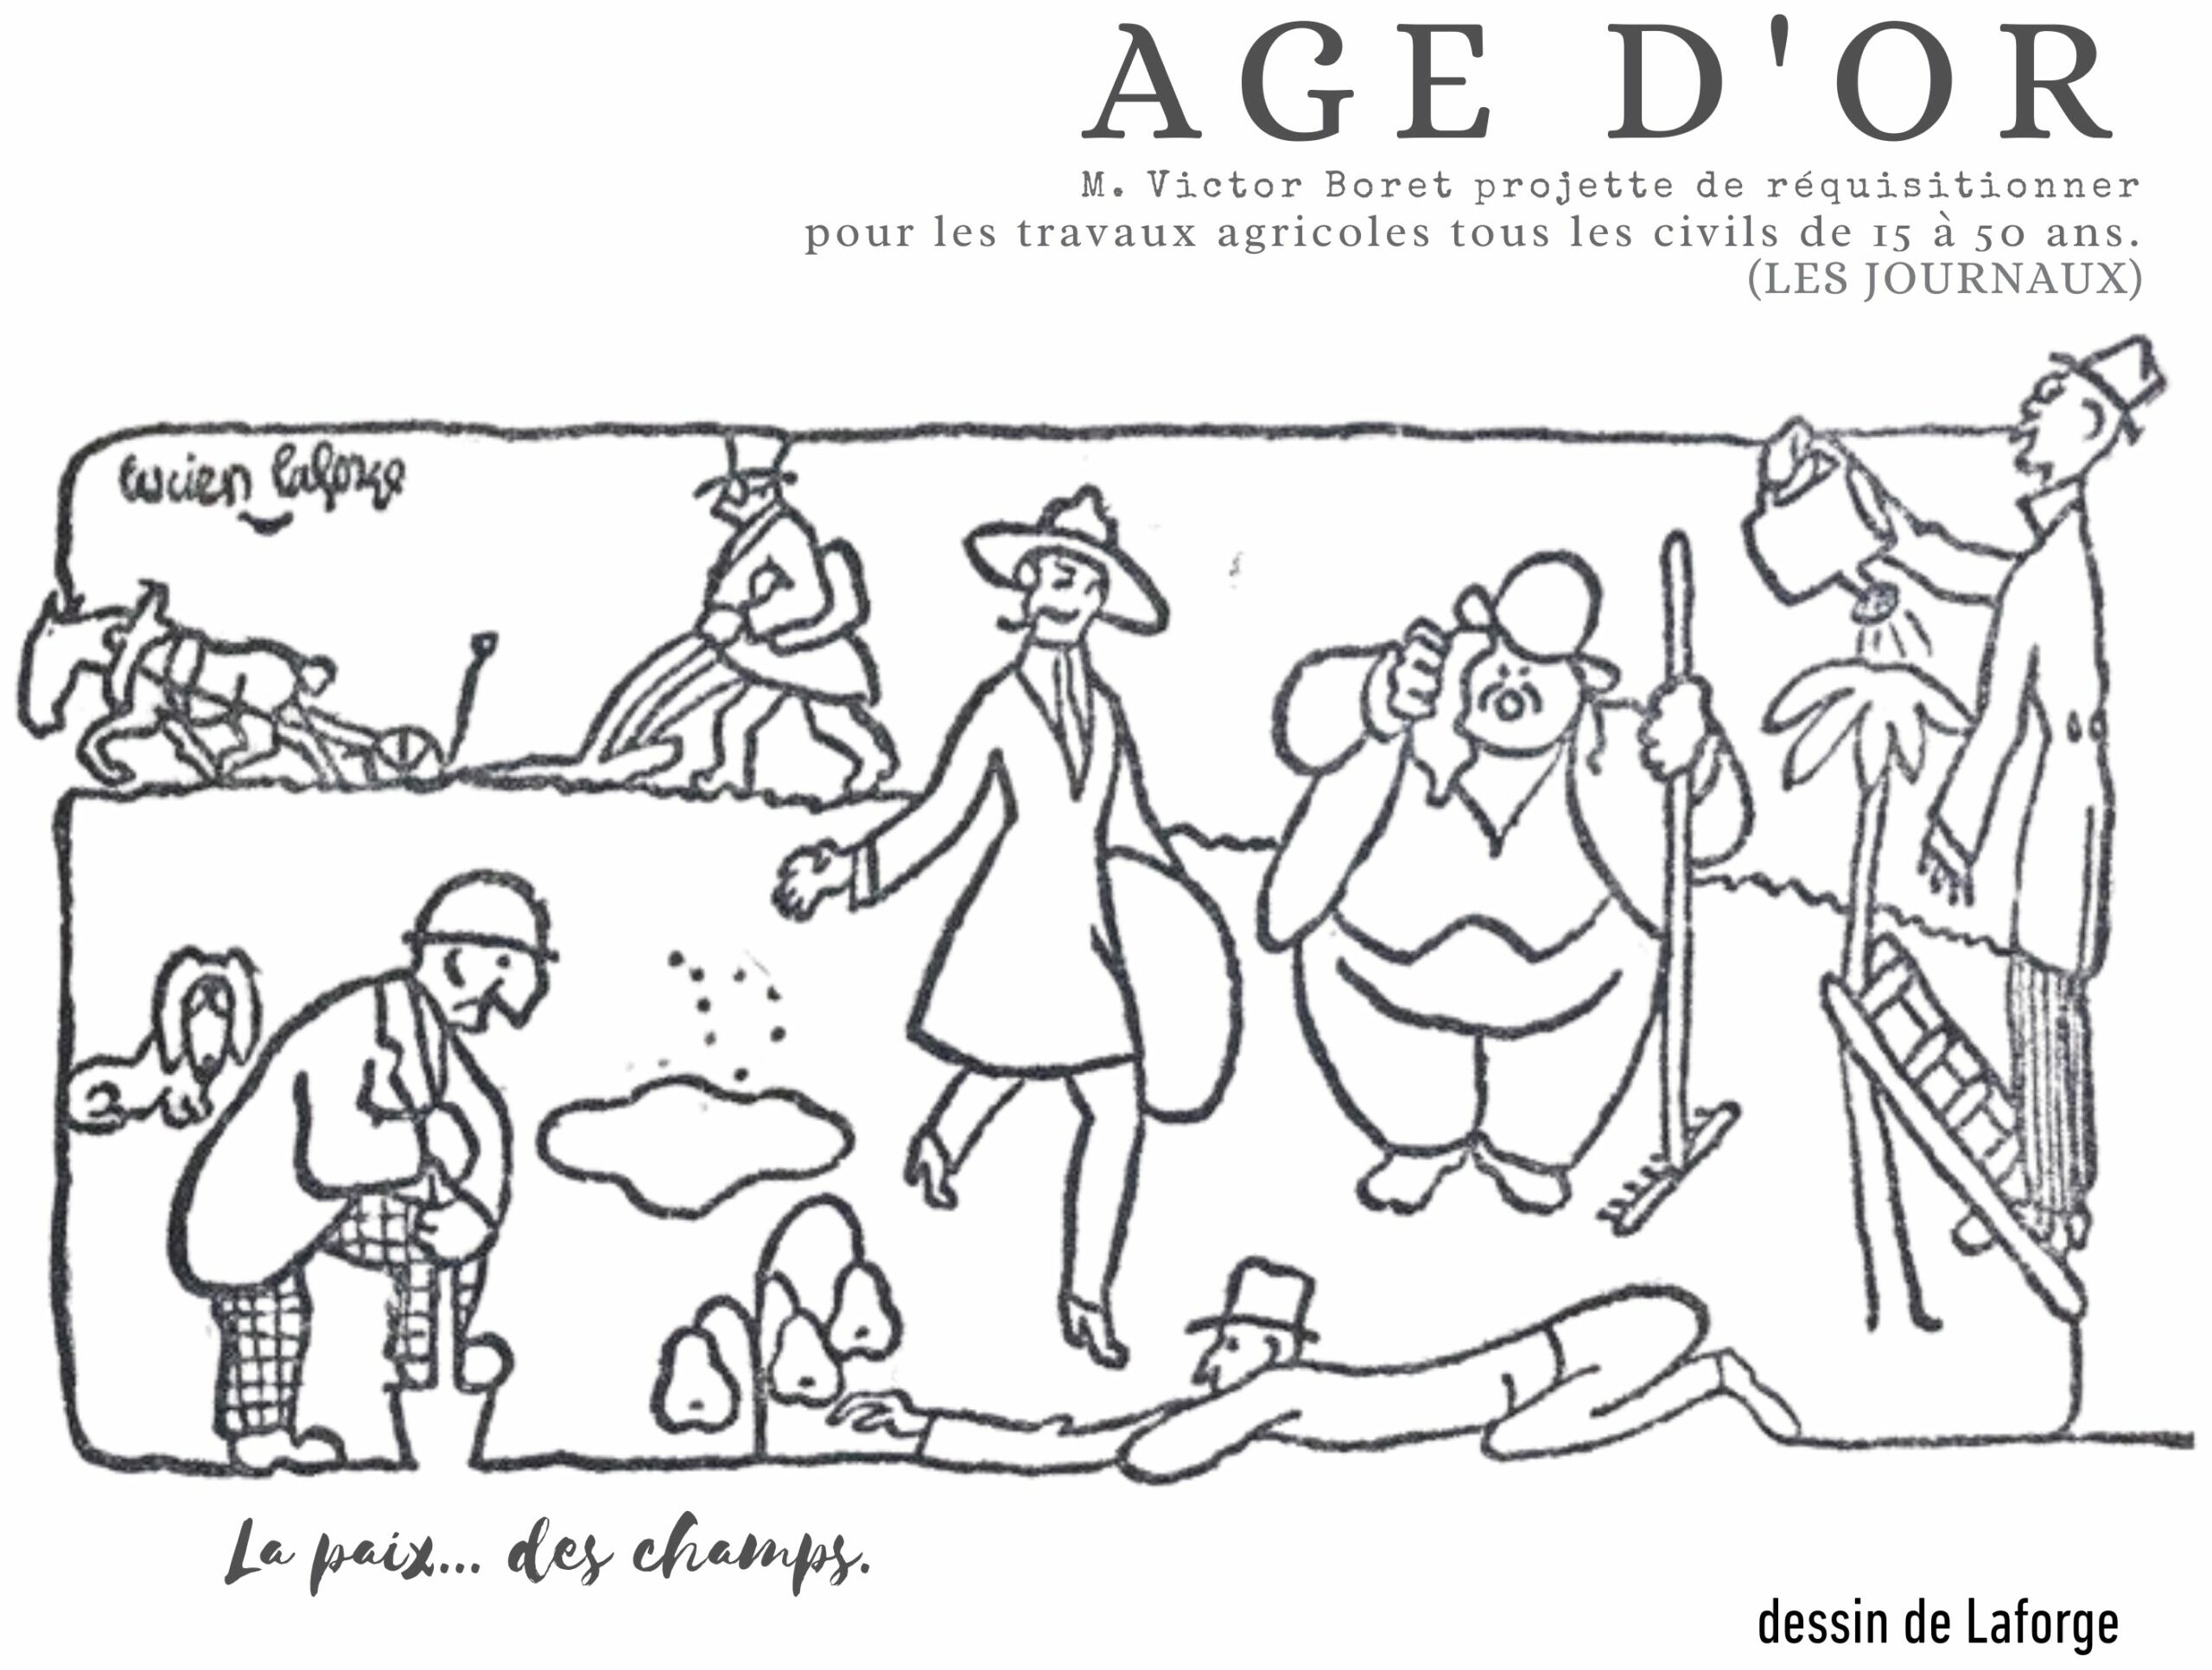 AGE D'OR
M. Victor Boret projette de réquisitionner
pour les travaux agricoles tous les civils de 15 à 50 ans.
(LES JOURNAUX)
Lucien Laforge
La paix... des champs.
dessin de Laforge